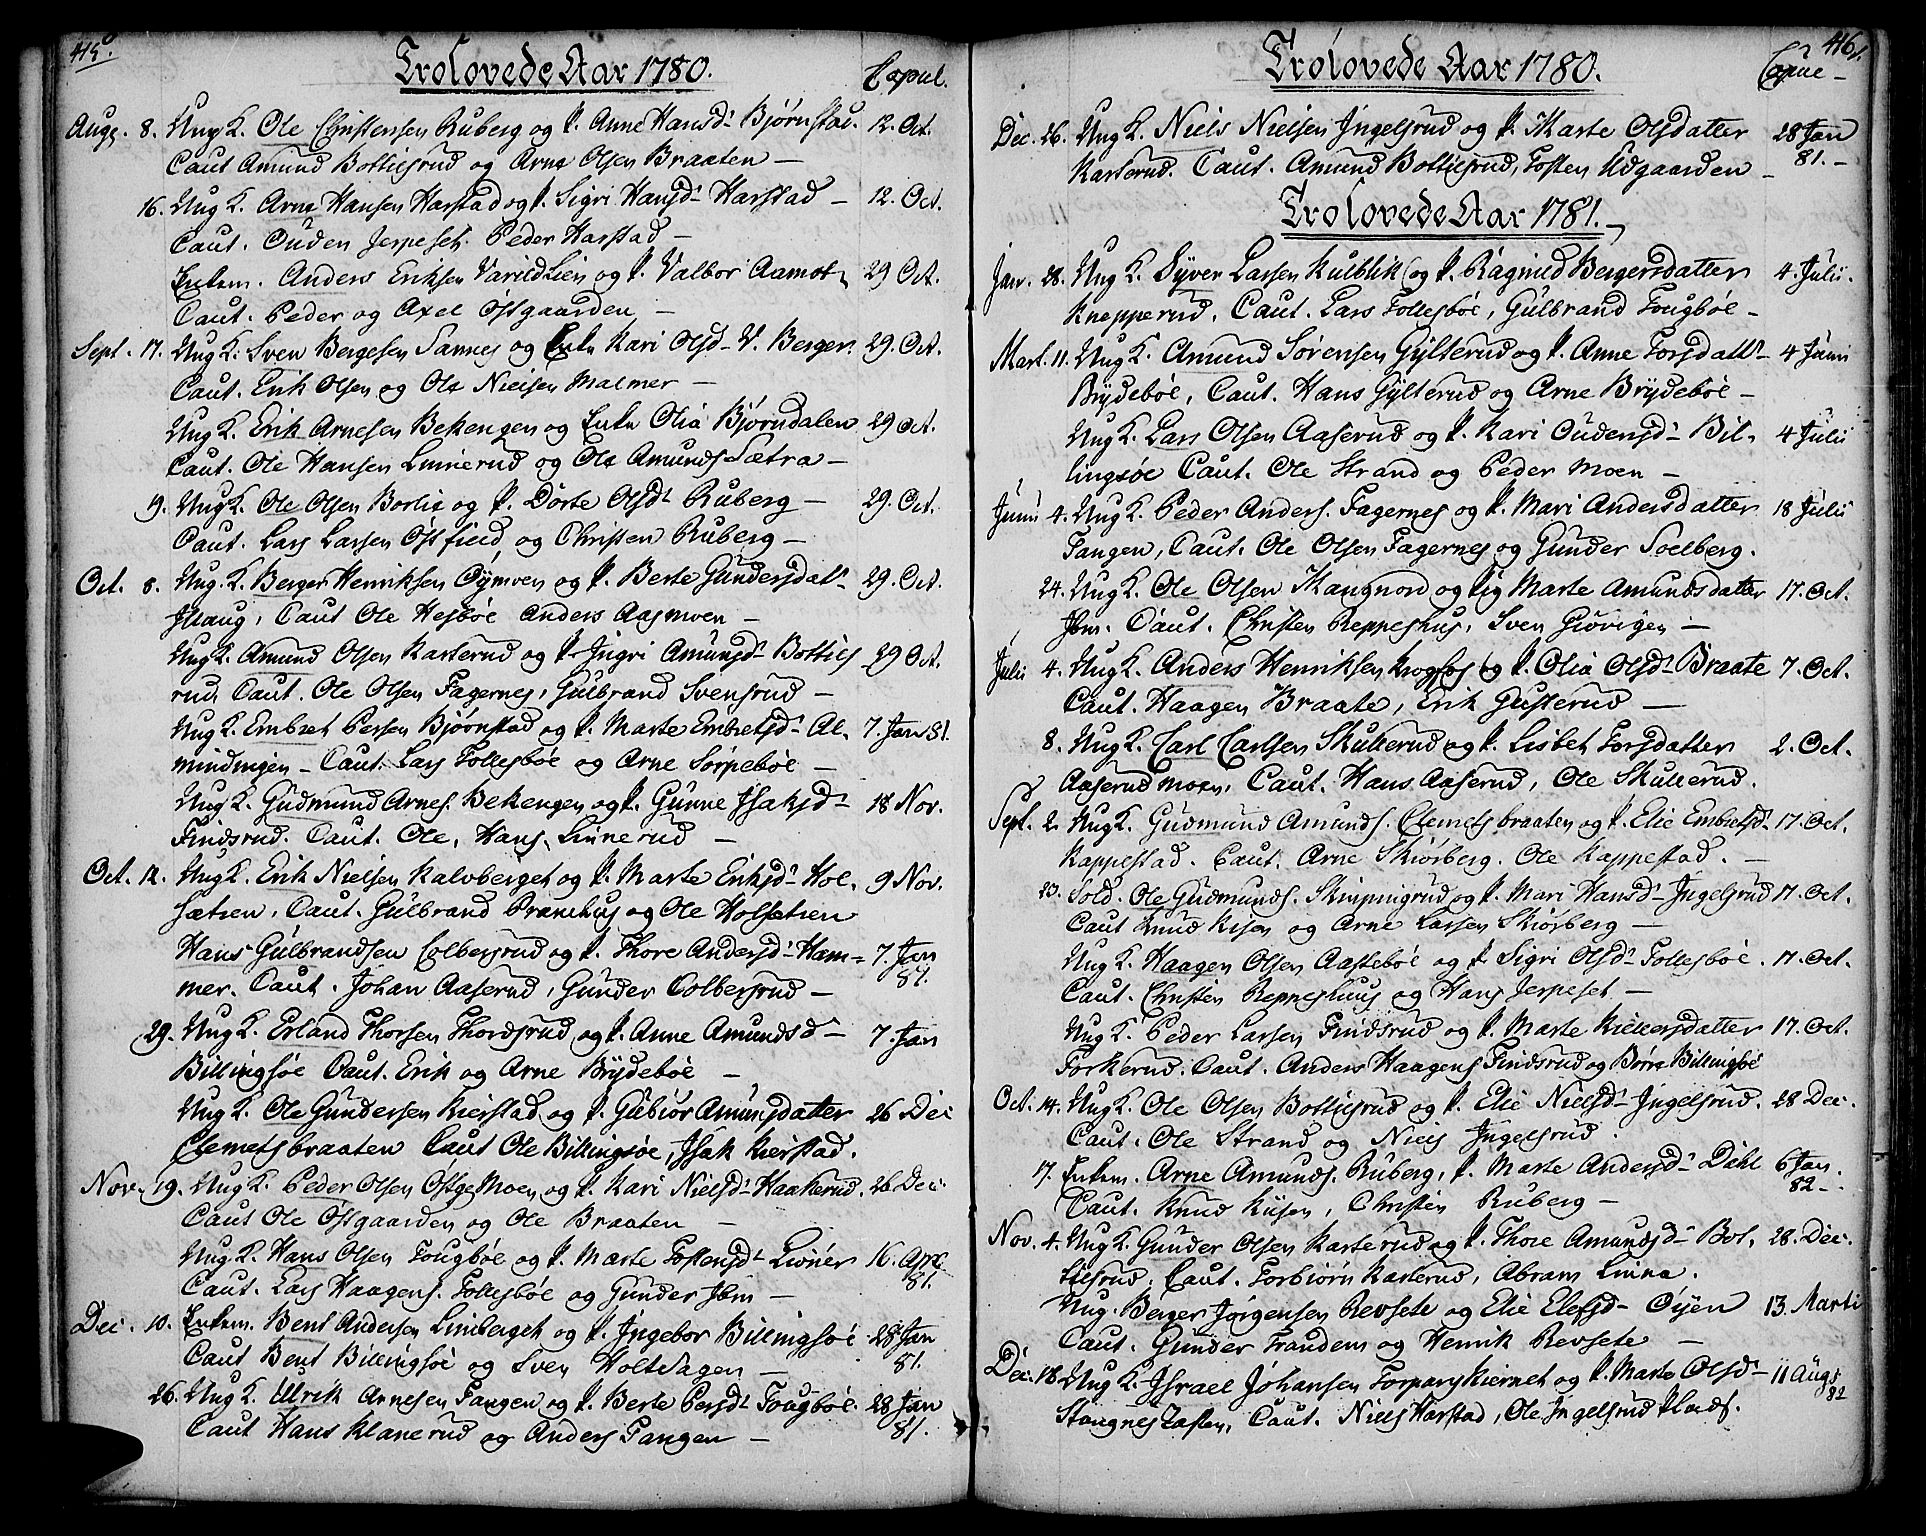 415.
Trolovede Aar 1780. Copul.
Aug. 8. Ung K. Ole Christensen Ruberg og P. Anne Hansd. Bjørnstad. 12. Oct.
Caut Amund Bottilsrud og Arne Olsen Braaten —
16. Ung K. Arne Hansen Harstad og P. Sigri Hansd. Harstad — 12. Oct.
Caut. Ouden Jerpeset. Peder Harstad —
Enkem. Anders Eriksen Varildlien og P. Valbor Aamot 29 Oct.
Caut. Peder og Axel Ostgaarden —
Sept. 17. Ung K. Sven Bergesen Sannes og Enke Kari Olsd. V. Berger. 29. Oct.
Caut. Erik Olsen og Ole Nielsen Malmer —
Ung K. Erik Arnesen Bekengen og Enke Olia Bjørndalen 29 Oct.
Caut. Ole Hansen Linnerud og Ole Amunds. Sætra —
19. Ung K. Ole Olsen Borlie og P. Dorte Olsd. Ruberg — 29. Oct.
Caut. Lars Larsen Østfield og Christen Ruberg —
Oct. 8. Ung. K. Berger Henriksen Oymoen og P. Berte Gundersdatt. 29. Oct.
Ihaug, Caut Ole Hesbøe Anders Aasmoen —
Ung K. Amund Olsen Karterud og P. Ingri Amunsd. Bottils 29 Oct.
rud. Caut. Ole Olsen Fagernes, Gulbrand Svensrud —
Ung K. Embret Persen Bjørnstad og P. Marte Embretsd. Al- 7. Jan 81.
mindingen — Caut. Lars Follesbøe og Arne Sorpebøe —
Ung K. Gudmund Arnes. Bekengen og P. Gunne Isaksd. 18 Nov.
Findsrud. Caut. Ole, Hans, Linnerud —
Oct. 12. Ung K. Erik Nielsen Kalvberget og P. Marte Eriksd. Hol- 9 Nov.
sætren, Caut. Gulbrand Pramhus og Ole Holsetren
Hans Gulbrandsen Colbersrud og P. Thore Andersd. Ham= 7. Jan
mer. Caut. Johan Aaserud, Gunder Colbersrud — 81.
29. Ung K. Erland Thorsen Thordsrud og P. Anne Amundsd. 7. Jan
Billingsøe Caut. Erik og Arne Brydebøe —
Ung K. Ole Gundersen Kierstad og P. Gubiør Amunsdatter 26 Dec
Clemetsbraaten Caut Ole Billingsøe, Isak Kierstad.
Nov. 19. Ung K. Peder Olsen Ostgs Moen og P. Kari Nielsd. Haakerud. 26 Dec.
Caut Ole Ostgaarden og Ole Braaten —
Ung K. Hans Olsen Fougbøe og P. Marte Tostensd. Lionær 16. Apr.
Caut. Lars Haagens. Follesbøe og Gunder Ibm — 81.
Dec. 10. Enkem. Bent Andersen Linberget og P. Ingebor Billingsøe 28 Jan
Caut Bent Billingsøe og Sven Holtshagen — 81.
26. Ung K. Ulrik Arnesen Tangen og P. Berte Persd. Fougbøe. 28 Jan
Caut Hans Klanerud og Anders Tangen — 81.
416.
Trolovede Aar 1780. Copul
Dec. 26. Ung K. Niels Nielsen Ingelsrud og P. Marte Olsdatter 28 Jan
Karterud. Caut. Amund Bottilsrud, Tosten Udgaarden — 81. —
Trolovede Aar 1781.
Jan. 28. Ung K. Syver Larsen Kulblik og P. Ragnild Bergersdatter 4. Julii.
Knepperud. Caut. Lars Follesbøe, Gulbrand Fougbøe —
Mart. 11. Ung K. Amund Sørensen Gylterud og P. Anne Torsdatt. 4 Juni
Brydebøe, Caut. Hans Gylterud og Arne Brydebøe —
Ung K. Lars Olsen Aaserud og P. Kari Oudensd. Bil- 4 Julii
lingsøe Caut. Ole Strand og Peder Moen —
Junii 4. Ung K. Peder Anders. Fagernes og P. Mari Andersdatter 18 Julii
Tangen, Caut. Ole Olsen Fagernes og Gunder Soelberg.
24. Ung K. Ole Olsen Kangnord og Pig Marte Amundsdatter 17. Oct.
Ibm. Caut. Christen Reppeshus, Sven Giøvigen —
Julii 4. Ung K. Anders Henriksen Krogfos og P. Olia Olsd. Braate 7. Oct.
Caut. Haagen Braate, Erik Gusterud —
8. Ung K. Carl Carlsen Skullerud og P. Lisbet Torsdatter 2. Oct.
Aaserudmoen. Caut. Hans Aaserud, Ole Skullerud.
Sept. 2. Ung K. Gudmund Amunds. Clemetsbraaten og P. Elie Embretsd. 17. Oct.
Kappestad. Caut. Arne Skiørberg. Ole Kappestad. —
23. Sold. Ole Gudmunds. Skinpingrud og P. Mari Hansd. Ingelsrud 17. Oct.
Caut Knud Kisen og Arne Larsen Skiørberg —
Ung K. Haagen Olsen Aastebøe og P. Sigri Olsd. Follesbøe. 17. Oct.
Caut. Christen Reppeshuus og Hans Jerpeset —
Ung K. Peder Larsen Findsrud og P. Marte Killersdatter 17. Oct.
Torkerud. Caut. Anders Haagens Findsrud og Børre Billingsøe
Oct. 14. Ung K. Ole Olsen Bottilsrud og P. Elie Nielsd. Ingelsrud. 28 Dec.
Caut. Ole Strand og Niels Ingelsrud.
17. Enkem. Arne Amunds. Ruberg, P. Marte Andersd. Dahl 6 Jan.
Caut. Knud Kiisen, Christen Ruberg — 82 —
Nov. 4. Ung K. Gunder Olsen Karterud og P. Thore Amundsd. Bot- 28. Dec.
tilsrud. Caut. Torbiørn Karterud, Abram Linna.
Ung. Berger Jørgensen Revsete og Elie Elefsd. Oyen 13. Marti
Caut. Gunder Trandem og Henrik Revsete —
Dec. 18. Ung K. Israel Johansen Torpary Kiernet og P. Marte Olsd. 11 Augs
Stangnes Tasten, Caut. Niels Harstad, Ole Ingelsrud Plads. 82